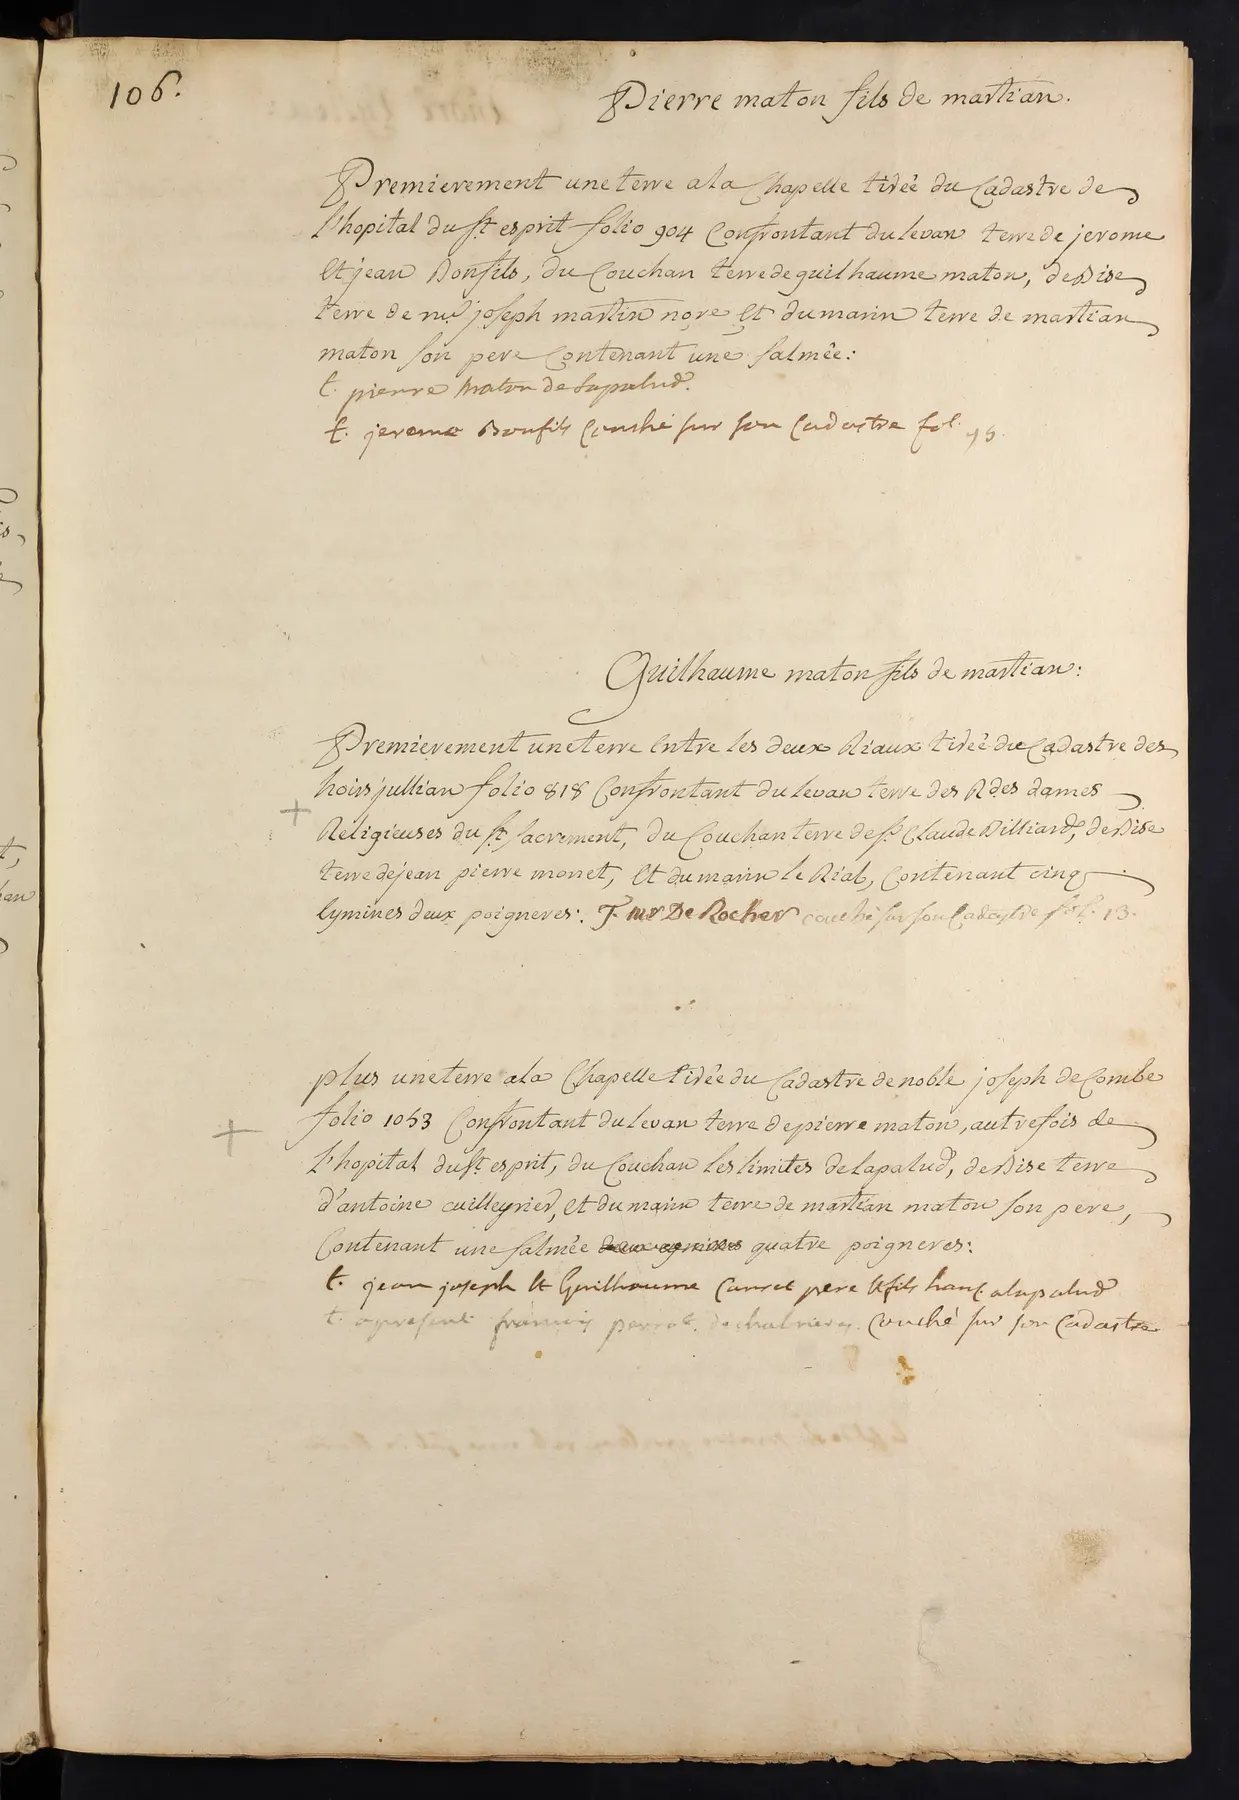 106.
Pierre maton fils de martian.
Premierement une terre a la Chapelle tirée du Cadastre de
l'hopital du st esprit folio 904 Confrontant du levan terre de jerome
Et jean Bonfils, du Couchan terre de guilhaume maton, de Bise
terre de mr joseph martin nore Et du marin terre de martian
maton son pere Contenant une salmée:
t. pierre maton de Lapalud.
t. jerome Bonfils Couché sur son Cadastre fol.
Guilhaume maton fils de martian:
Premierement une terre Entre les deux Riaux tirée du Cadastre des
hoirs jullian folio 818 Confrontant du levan terre des Rdes dames
Religieuses du st sacrement, du Couchan terre de sr Claude Billiard, de Bise
terre de jean pierre monet, Et du marin le Rial, Contenant cinq
lymines deux poigneres: T. mr De Rocher couché sur son Cadastre fol. 13.
plus une terre a la Chapelle tirée du Cadastre de noble joseph de Combe
folio 1053 Confrontant du levan terre de pierre maton, autrefois de
l'hopital du st esprit, du Couchan les limites de lapalud, de Bise terre
d'antoine cuilleyrier, Et du marin terre de martian maton son pere,
Contenant une salmée quatre poigneres:
t. jean joseph Et Guilhaume pere Et fils hant. a lapalud
t. apresent francois Couché sur son Cadastre